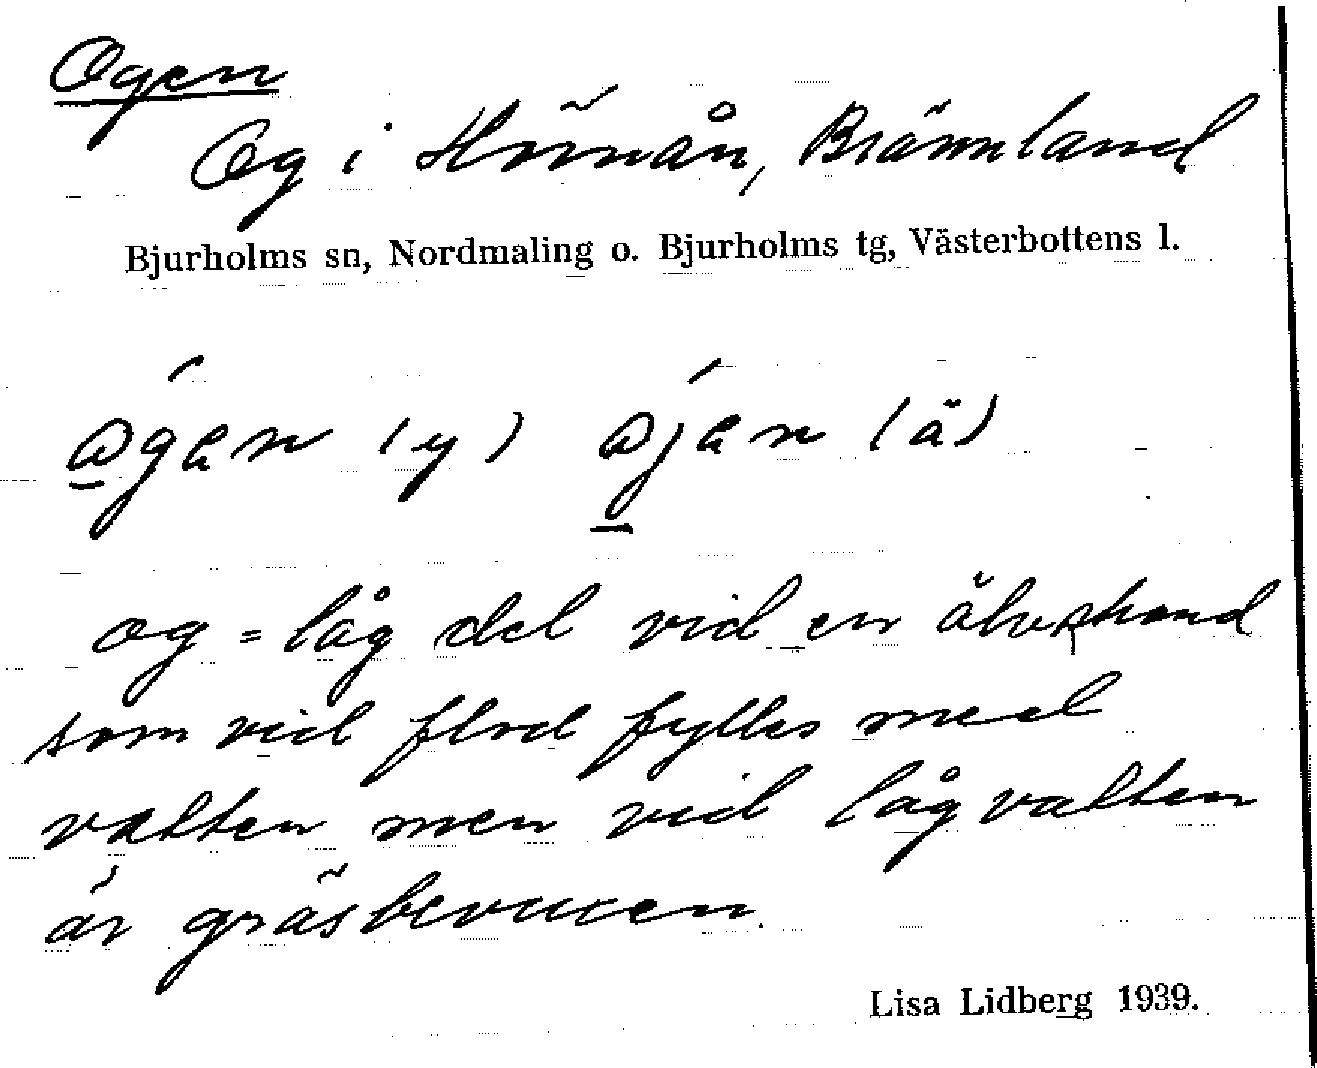 Ogen
Og i Hörnån, Brännland
Bjurholms sn, Nordmaling o. Bjurholms tg, Västerbottens l.
ógen (y) ójen (ä)
og = låg del vid en älvstrand
som vid flod fylles med
vatten men vid lågvatten
är gräsbevuxen.
Lisa Lidberg 1939.